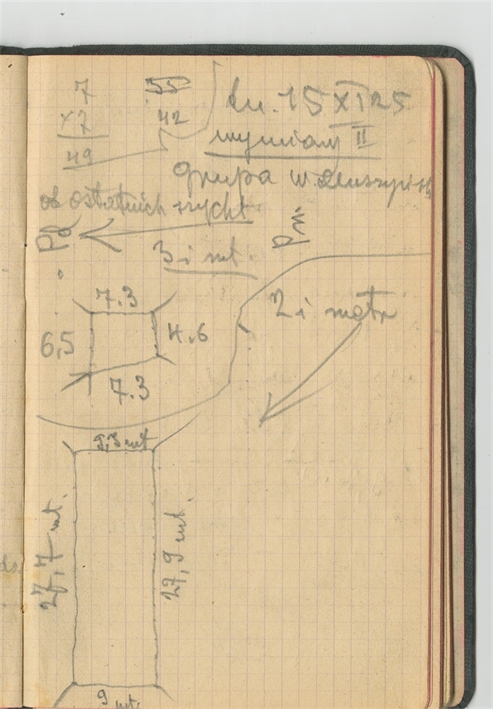 7
x7
49
55
42
dn. 15 XI 25
wymiary II
grupa w
od ostatnich szycht
Pd
3 i mt.
Pn
7.3
6,5
4.6
7.3
2 i metr
9,3 mt
27,7 mt.
27,9 mt.
9 mt.